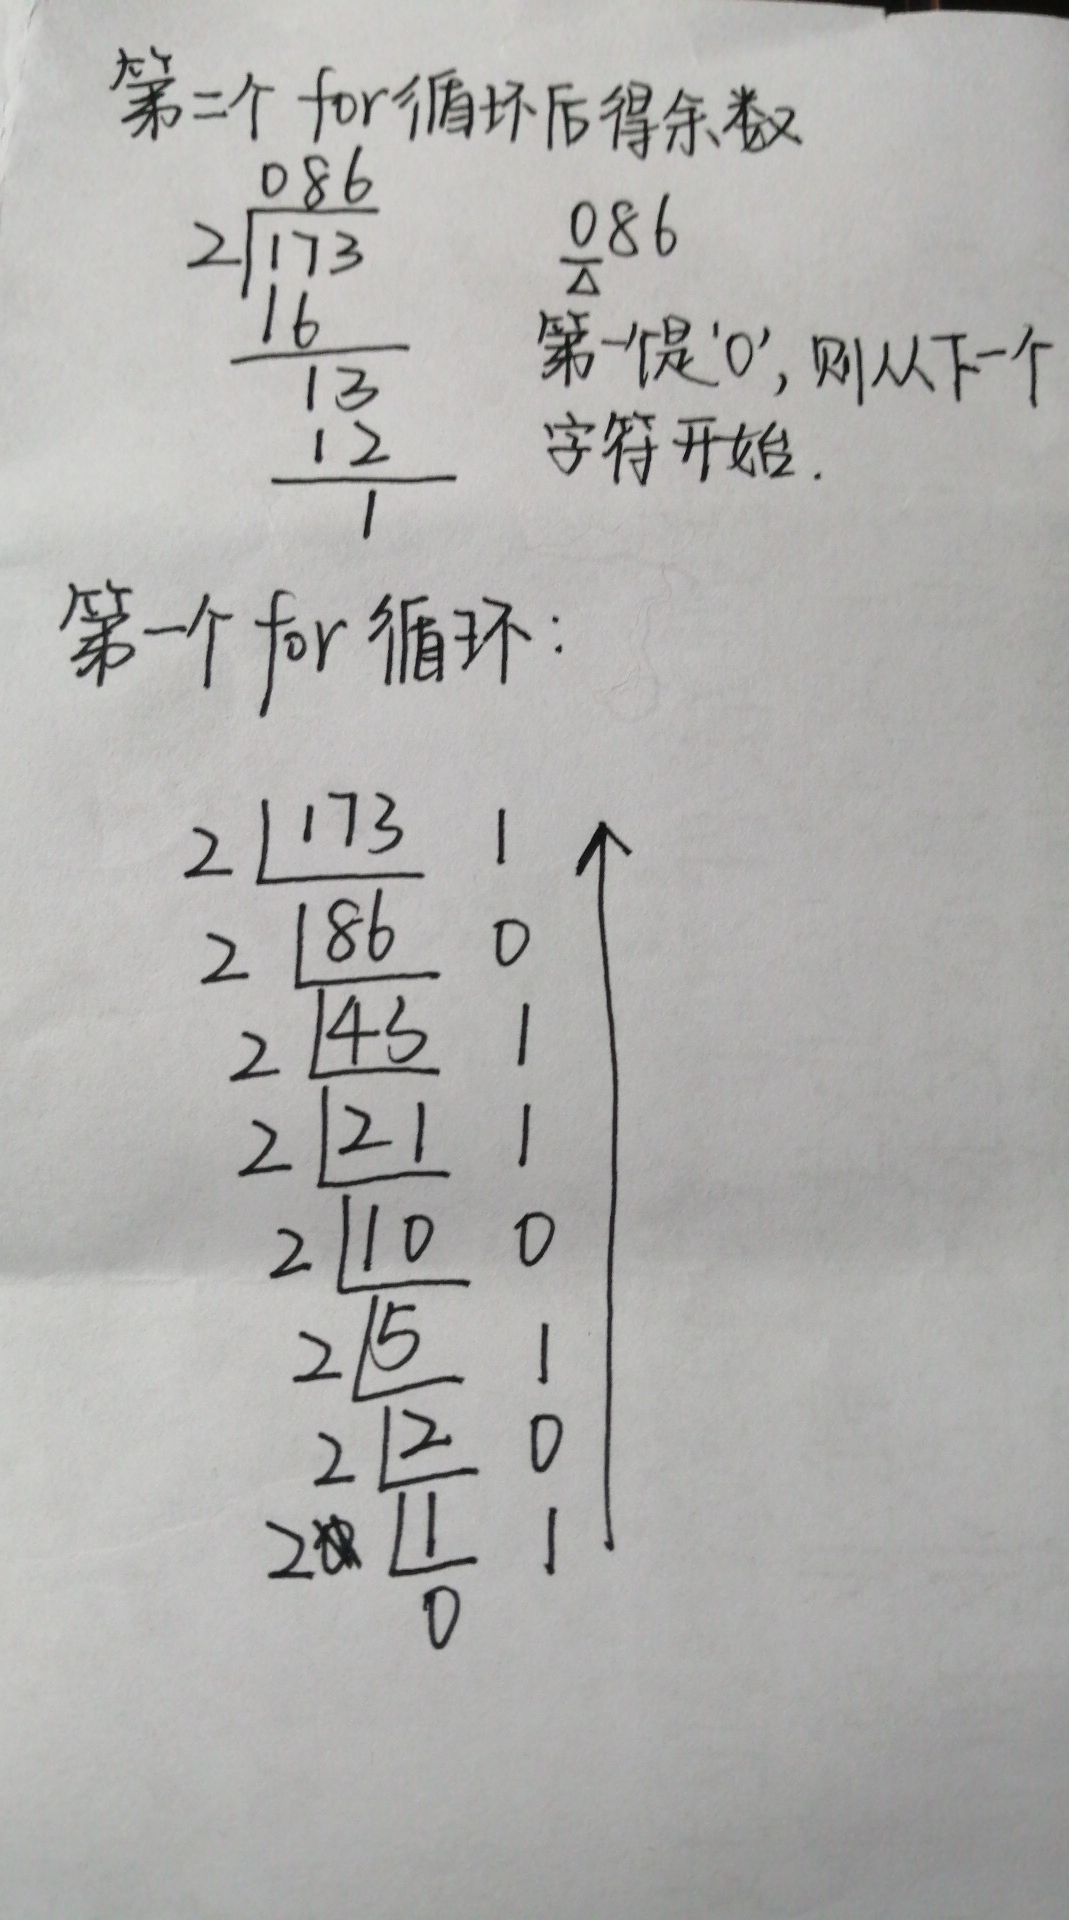 第二个for循环后得余数
086
2 173
16
13
12
1
086
△
第一个是'0',则从下一个
字符开始.
第一个for循环:
2 173 1
2 86 0
2 43 1
2 21 1
2 10 0
2 5 1
2 2 0
2 1 1
0